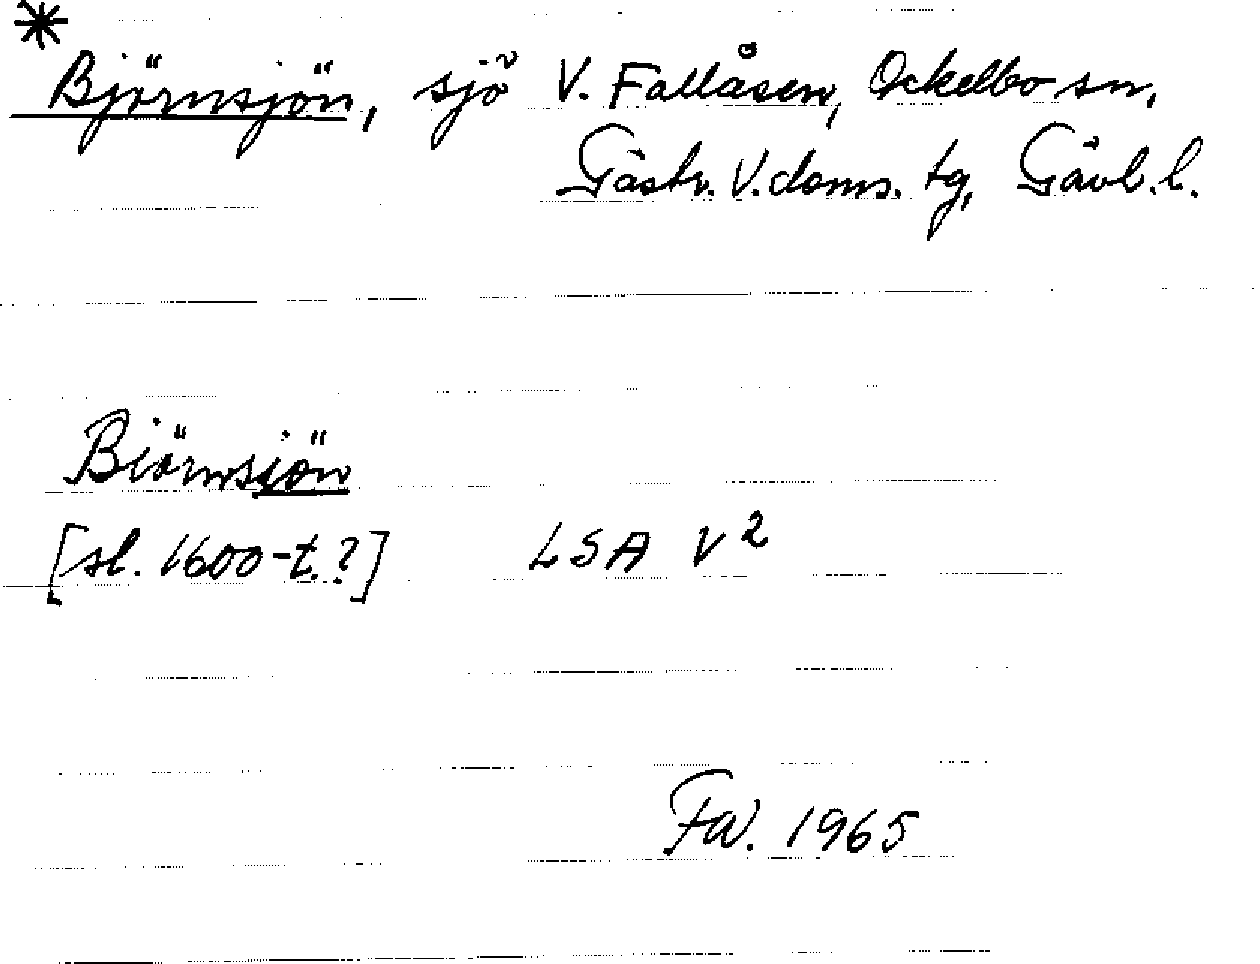 *
Björnsjön, sjö V. Fallåsen, Ockelbo sn,
Gästr. V. doms. tg, Gävl. l.
Biörnsiön
[sl. 1600-t.?] LSA V²
FW. 1965